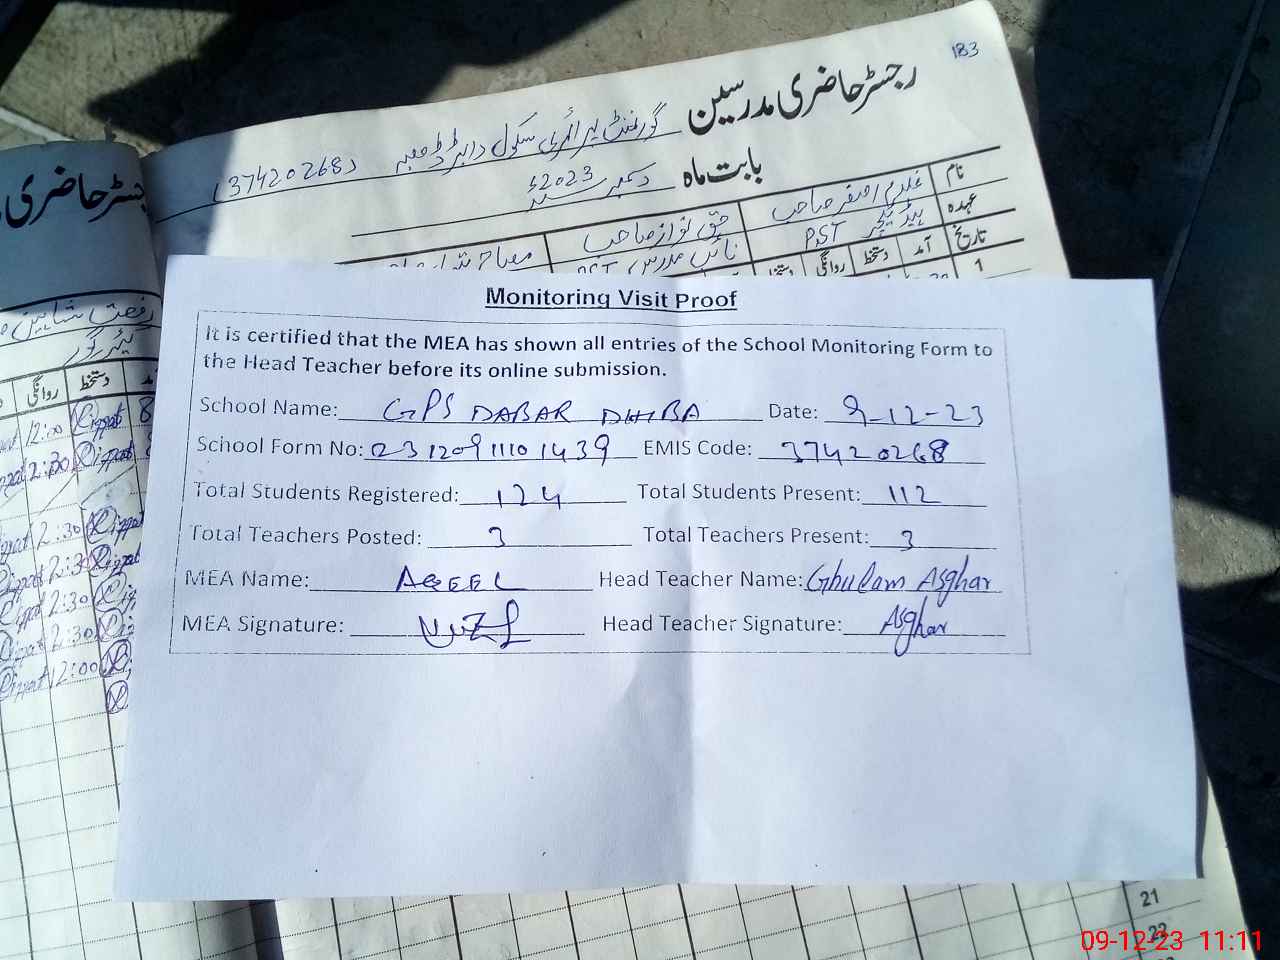 183
رجسٹر حاضری مدرسین گورنمنٹ پرائمری سکول ڈابر (37420268)
بابت ماہ دسمبر 2023ء
نام غلام اصغر صاحب حق نواز صاحب
عہدہ ہیڈ ٹیچر PST نائب مدرس PST
تاریخ آمد دستخط روانگی دستخط
1
جسٹر حاضری
رفعت شاہین
روانگی دستخط
12:00 Riffat 8
Monitoring Visit Proof
It is certified that the MEA has shown all entries of the School Monitoring Form to
the Head Teacher before its online submission.
School Name: GPS DABAR DHIBA Date: 9-12-23
School Form No: 0231209111101439 EMIS Code: 37420268
Total Students Registered: 124 Total Students Present: 112
Total Teachers Posted: 3 Total Teachers Present: 3
MEA Name: AQEEL Head Teacher Name: Ghulam Asghar
MEA Signature: Head Teacher Signature: Asghar
2:30 Riffat
2:30 Riffat
2:30
2:30
2:30
12:00
21
22
09-12-23 11:11